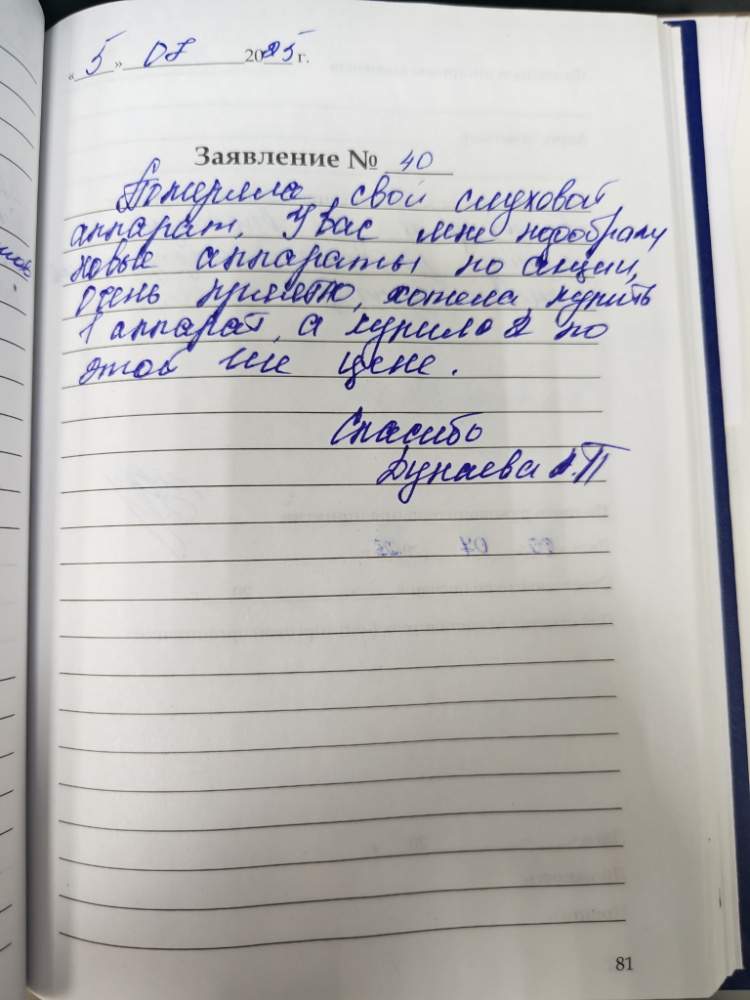 «5» 07 2025 г.
Заявление № 40
Потеряла свой слуховой
аппарат. У Вас мне подобрали
новые аппараты по акции,
очень приятно, хотела купить
1 аппарат, а купила 2 по
этой же цене.
Спасибо
Дунаева А.П
81